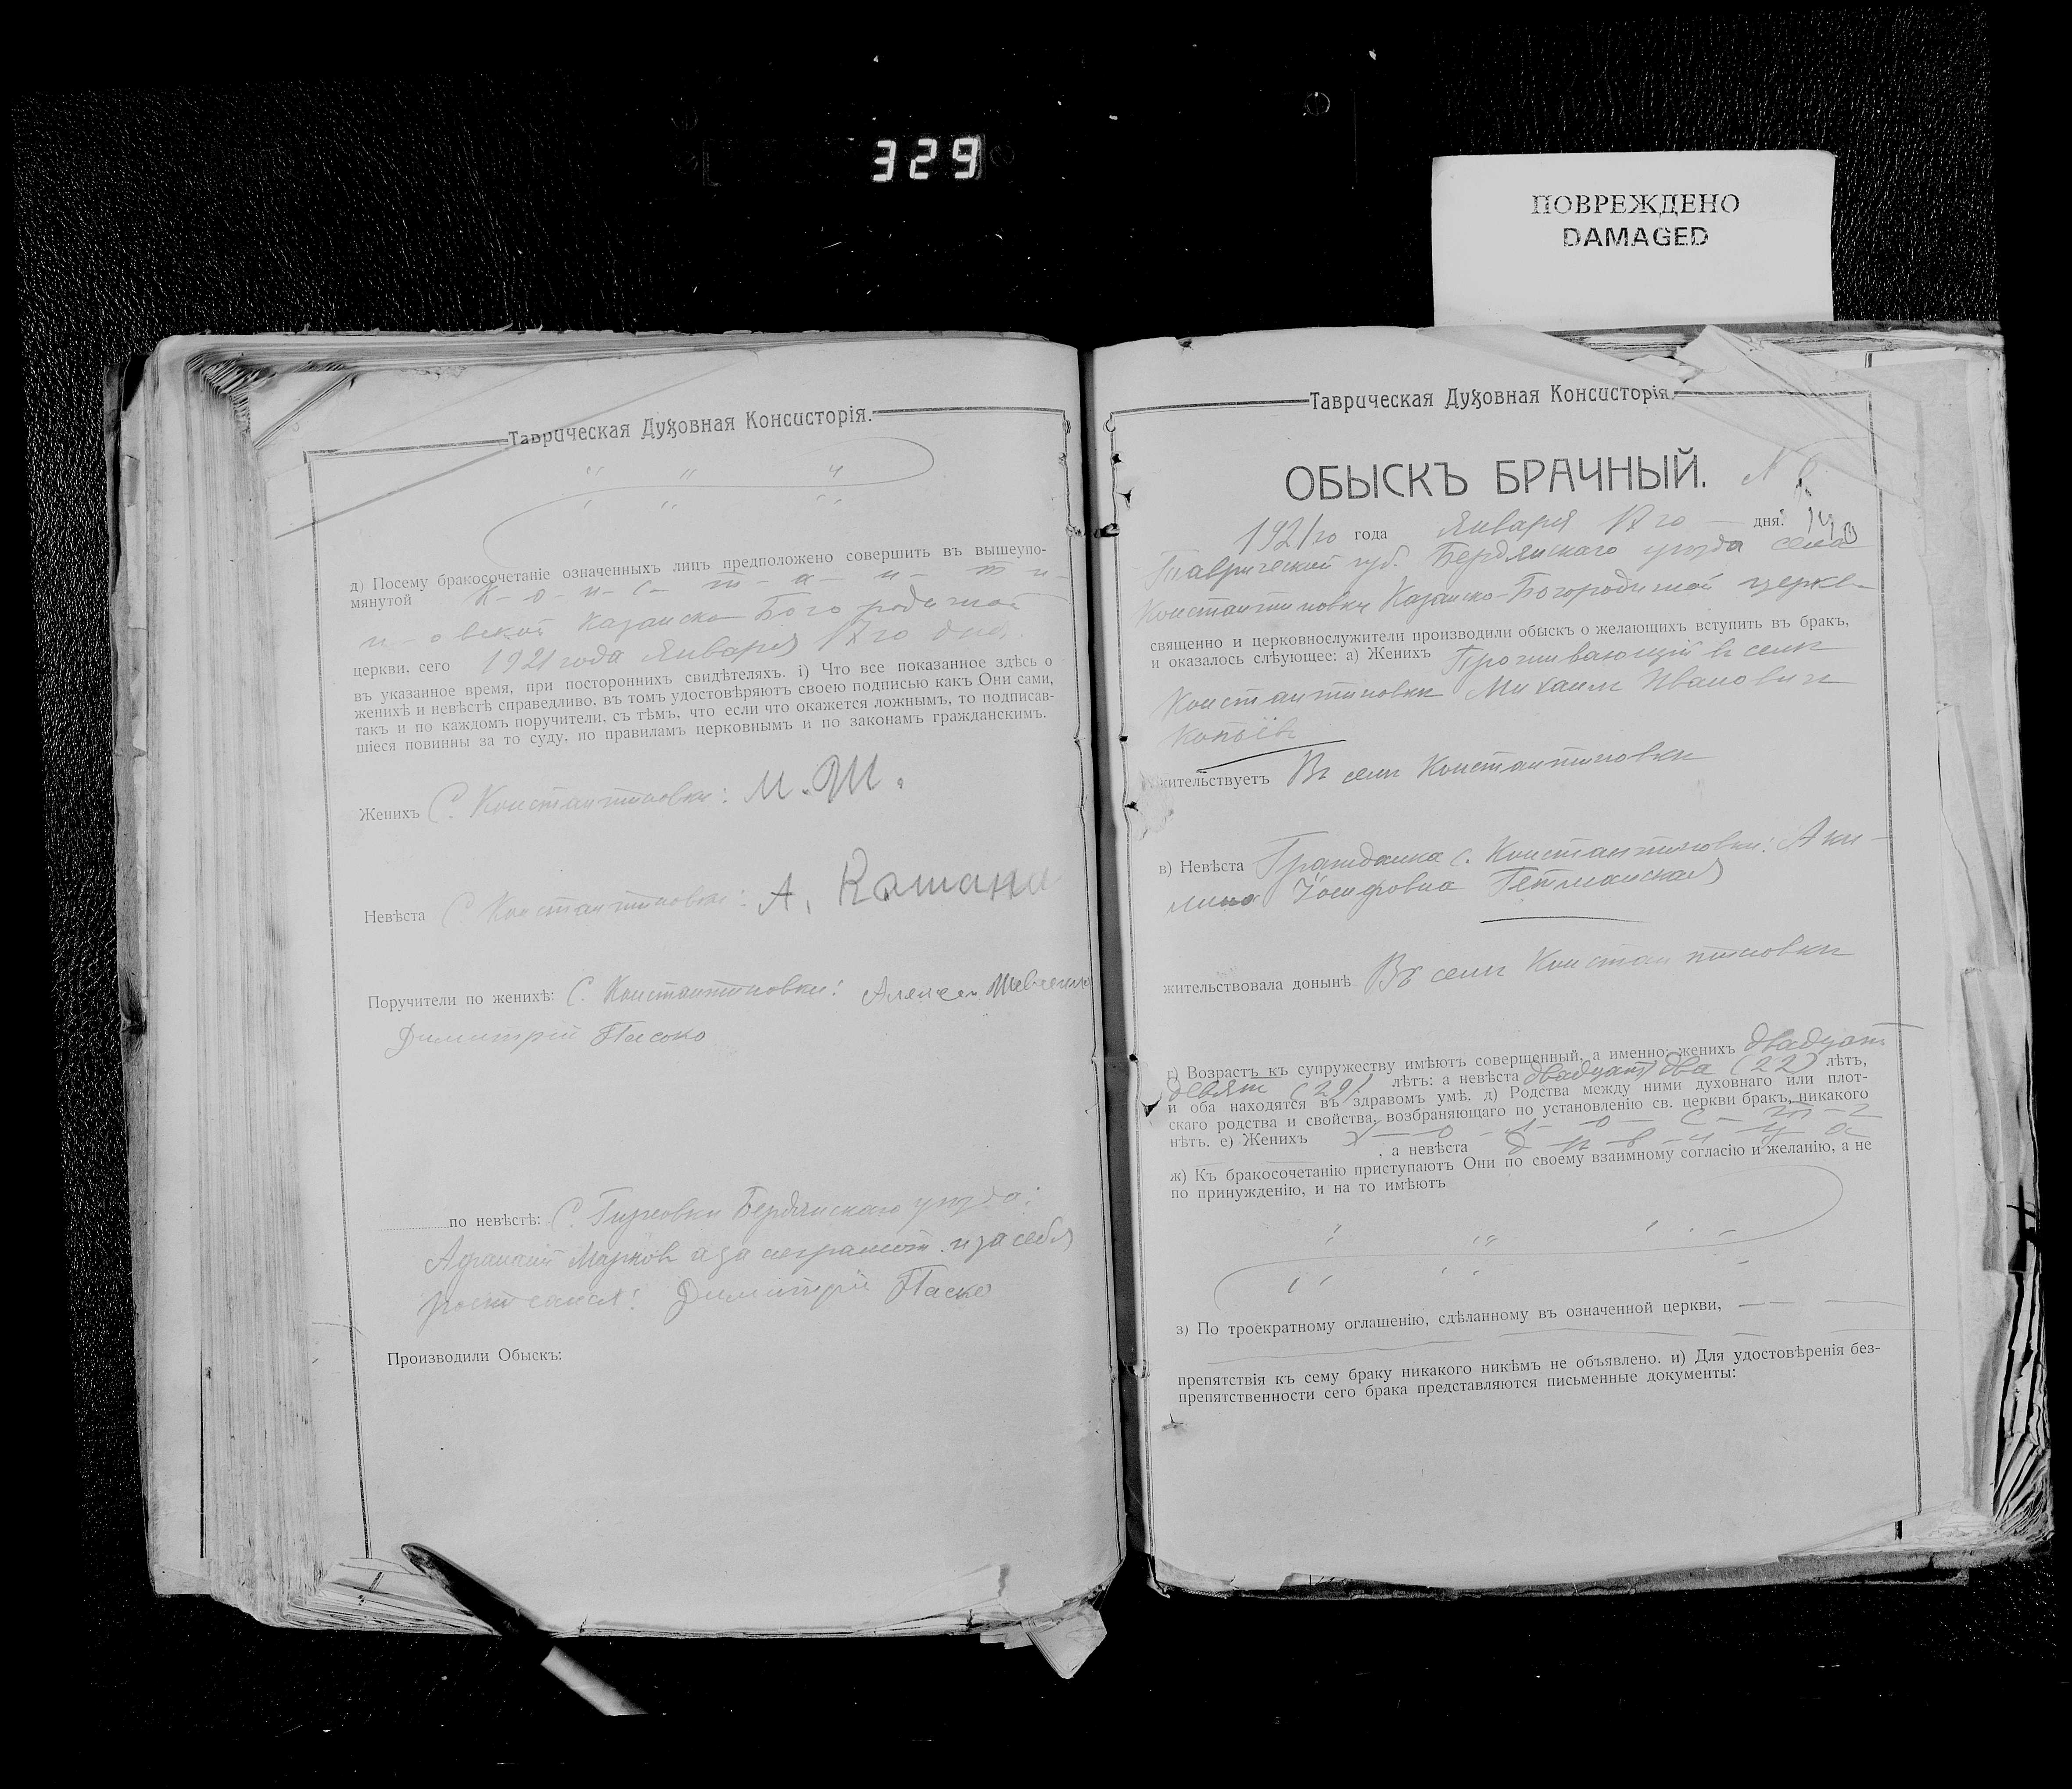 329
ПОВРЕЖДЕНО
DAMAGED
Таврическая Духовная Консисторія.
д) Посему бракосочетаніе означенныхъ лицъ предположено совершить въ вышеупо-
мянутой К-о-н-с-т-а-н-т-и-
н-овской Казанско Богородичной
церкви, сего 1921 года Января 17го дня.
въ указанное время, при постороннихъ свидѣтеляхъ. і) Что все показанное здѣсь о
женихѣ и невѣстѣ справедливо, въ томъ удостовѣряютъ своею подписью какъ Они сами,
такъ и по каждомъ поручители, съ тѣмъ, что если что окажется ложнымъ, то подписав-
шіеся повинны за то суду, по правиламъ церковнымъ и по законамъ гражданскимъ.
Женихъ С. Константиновки: М. Ш.
Невѣста С. Константиновки: А.
Поручители по женихѣ: С. Константиновки: Алексей
Димитрій
по невѣстѣ: С. Бердянскаго уѣзда:
Марков а за неграмот. и за себя
росписался: Димитрій Паско
Производили Обыскъ:
Таврическая Духовная Консисторія.
ОБЫСКЪ БРАЧНЫЙ. N
1921го года Января 17го дня.
Таврической губ. Бердянскаго уѣзда села
Константиновки Казанско-Богородичной церкв-
священно и церковнослужители производили обыскъ о желающихъ вступить въ бракъ,
и оказалось слѣующее: а) Женихъ Проживающій в селѣ
Константиновкѣ Михаил Иванович
Копьёв
жительствуетъ Въ селѣ Константиновкѣ
в) Невѣста Гражданка с. Константиновки: Аки-
лина Іосифовна Гетманская
жительствовала донынѣ Въ селѣ Константиновкѣ
г) Возрастъ къ супружеству имѣютъ совершенный, а именно: женихъ двадцать
девять (29) лѣтъ: а невѣста двадцать два (22) лѣтъ,
и оба находятся въ здравомъ умѣ. д) Родства между ними духовнаго или плот-
скаго родства и свойства, возбраняющаго по установленію св. церкви бракъ, никакого
нѣтъ. е) Женихъ х-о-л-о-с-т-
, а невѣста д-ѣ-в-и-ц-а
ж) Къ бракосочетанію приступаютъ Они по своему взаимному согласію и желанію, а не
по принужденію, и на то имѣютъ
з) По троекратному оглашенію, сдѣланному въ означенной церкви,
препятствія къ сему браку никакого никѣмъ не объявлено. и) Для удостовѣренія без-
препятственности сего брака представляются письменные документы: